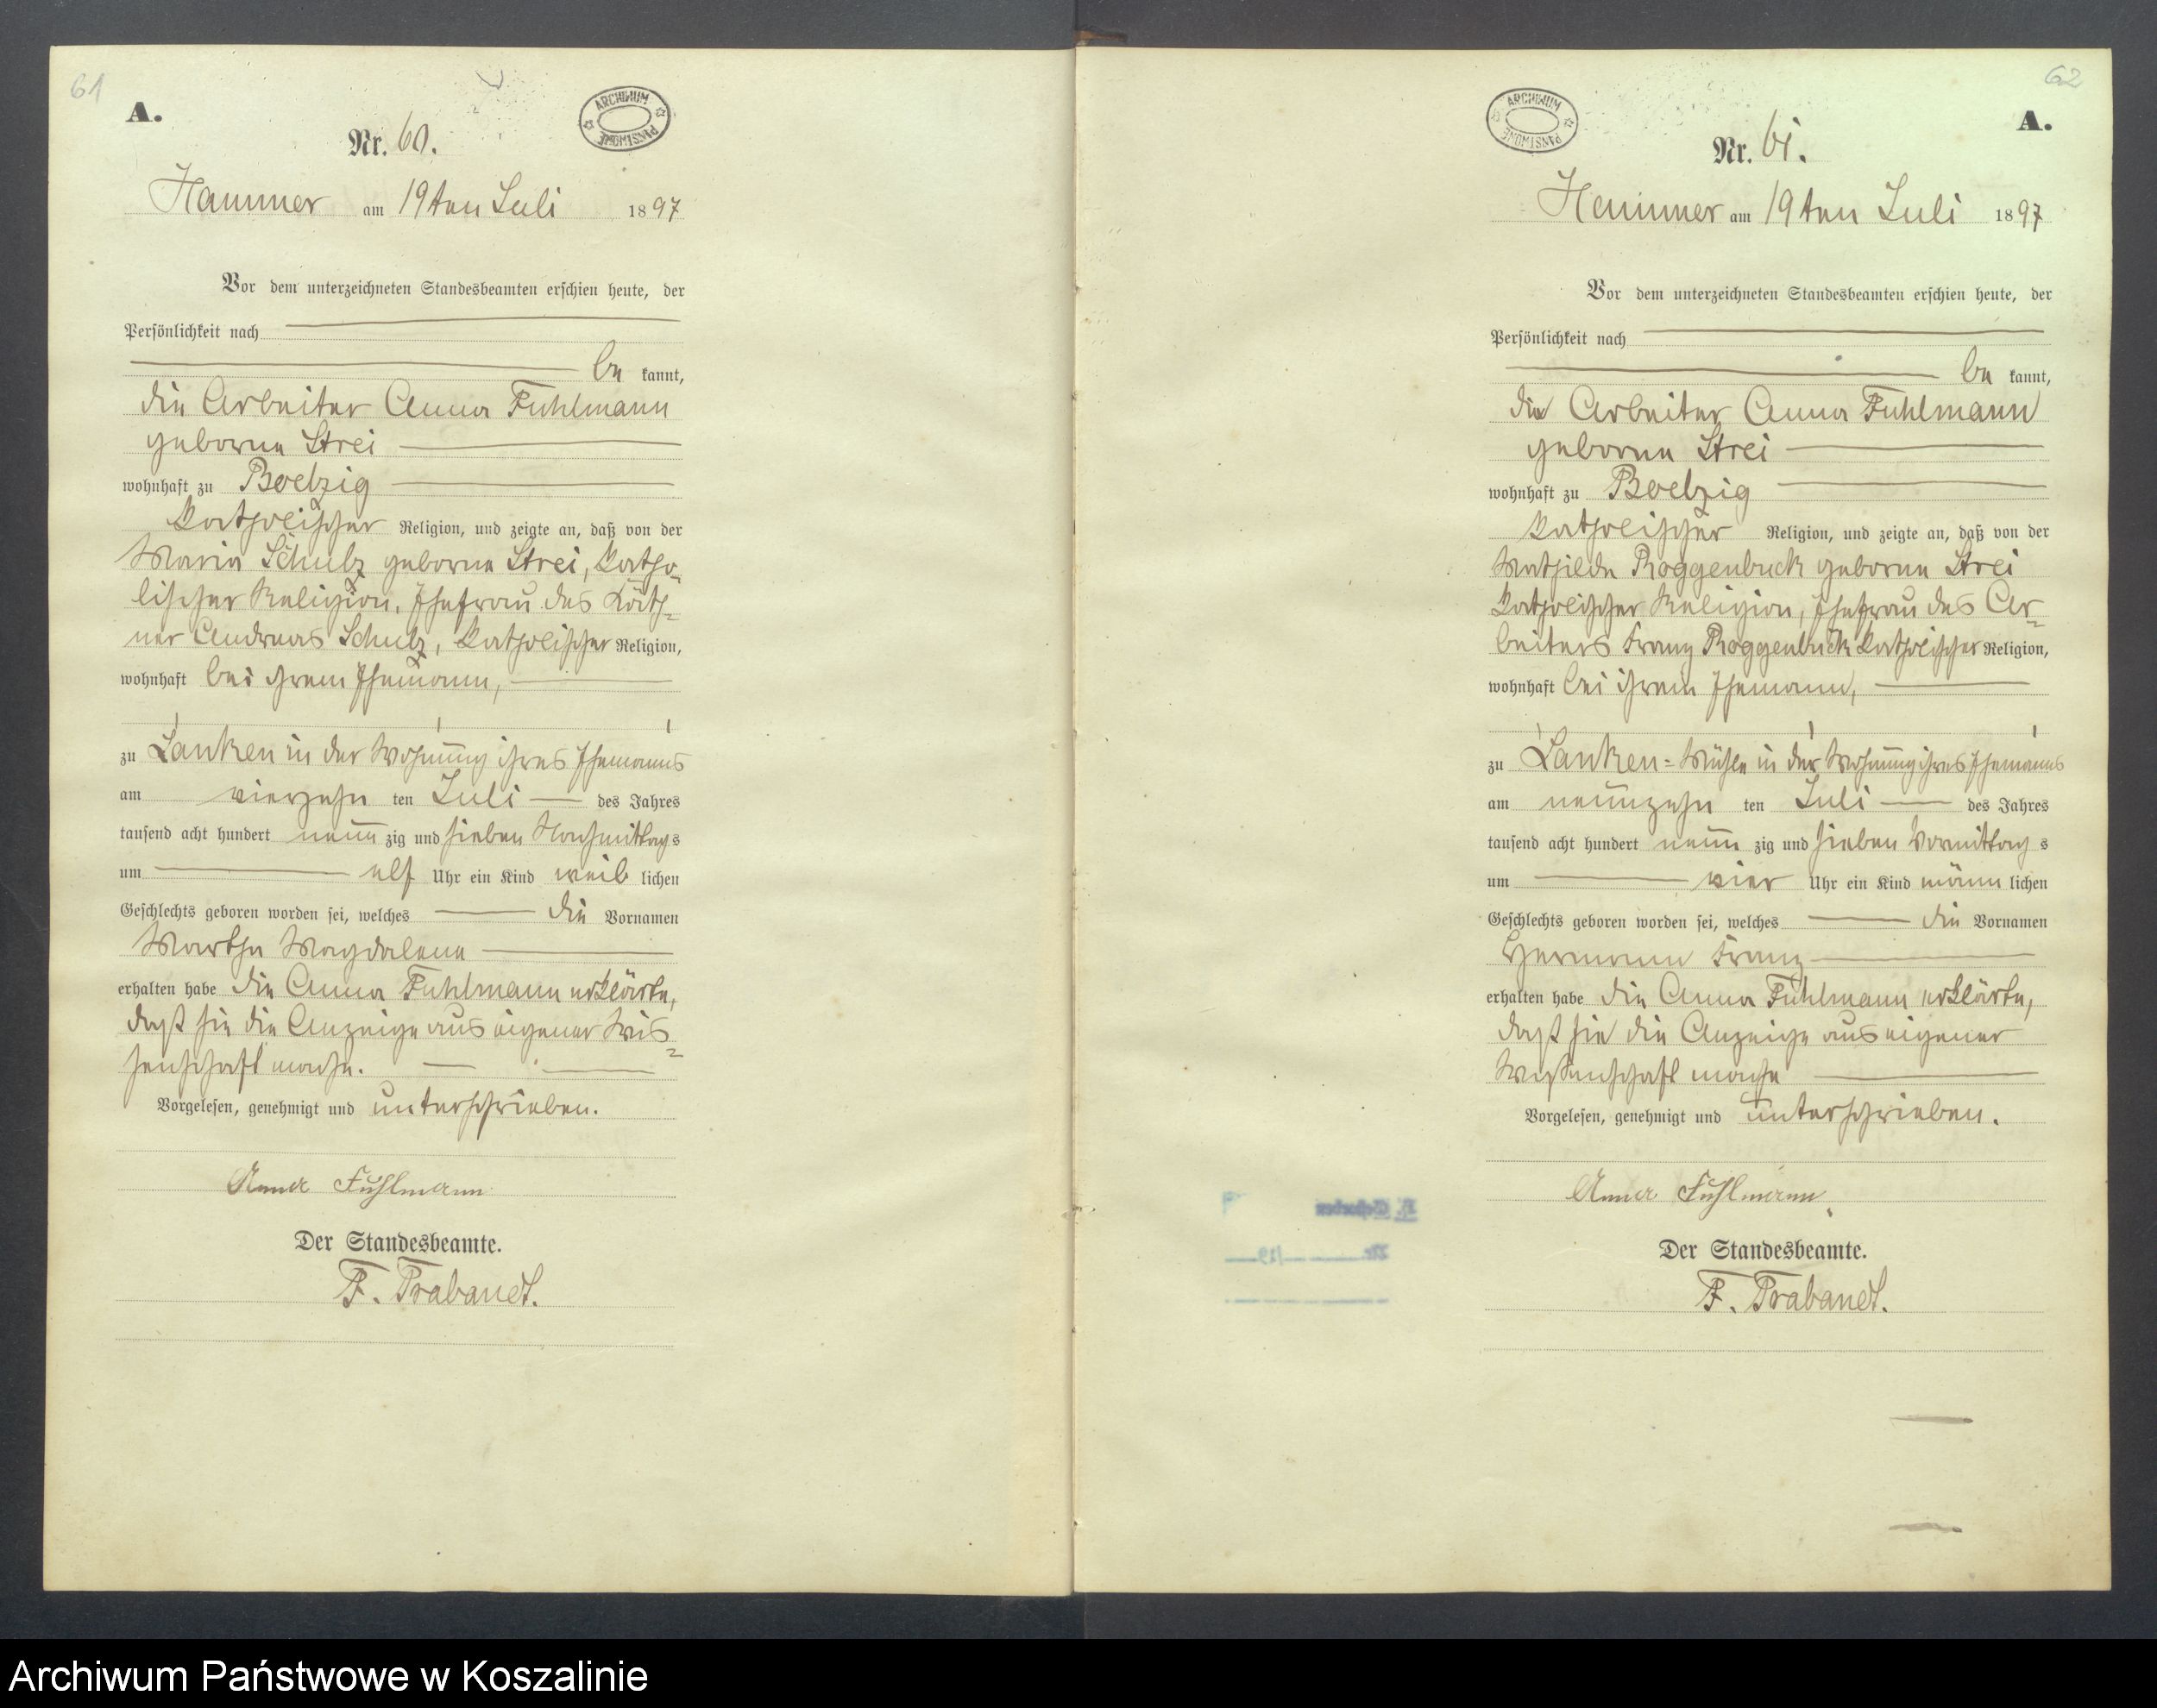 61
A.
ARCHIWUM PAŃSTWOWE
Nr. 60.
Hammer am 19ten Juli 1897
Vor dem unterzeichneten Standesbeamten erschien heute, der
Persönlichkeit nach
be kannt,
die Arbeiter Anna Fuhlmann
geborne Strei
wohnhaft zu Boelzig
katholischer Religion, und zeigte an, daß von der
Maria Schulz geborne Strei, katho-
lischer Religion, Ehefrau des Käth-
ner Andreas Schulz, katholischer Religion,
wohnhaft bei ihrem Ehemann,
zu Lanken in der Wohnung ihres Ehemanns
am vierzehn ten Juli des Jahres
tausend acht hundert neun zig und sieben Nachmittags
um elf Uhr ein Kind weib lichen
Geschlechts geboren worden sei, welches die Vornamen
Martha Magdalena
erhalten habe die Anna Fuhlmann erklärte,
daß sie die Anzeige aus eigener Wis-
senschaft mache.
Vorgelesen, genehmigt und unterschrieben.
Anna Fuhlmann
Der Standesbeamte.
F. Trabandt.
62
A.
ARCHIWUM PAŃSTWOWE
Nr. 61.
Hammer am 19ten Juli 1897
Vor dem unterzeichneten Standesbeamten erschien heute, der
Persönlichkeit nach
be kannt,
die Arbeiter Anna Fuhlmann
geborne Strei
wohnhaft zu Boelzig
katholischer Religion, und zeigte an, daß von der
Mathilde Roggenbuck geborne Strei
katholischer Religion, Ehefrau des Ar-
beiters Franz Roggenbuck katholischer Religion,
wohnhaft bei ihrem Ehemann,
zu Lanken-Mühle in der Wohnung ihres Ehemanns
am neunzehn ten Juli des Jahres
tausend acht hundert neun zig und sieben Vormittag s
um vier Uhr ein Kind männ lichen
Geschlechts geboren worden sei, welches die Vornamen
Hermann Franz
erhalten habe die Anna Fuhlmann erklärte,
daß sie die Anzeige aus eigener
Wissenschaft mache
Vorgelesen, genehmigt und unterschrieben.
Anna Fuhlmann
Der Standesbeamte.
F. Trabandt.
Archiwum Państwowe w Koszalinie